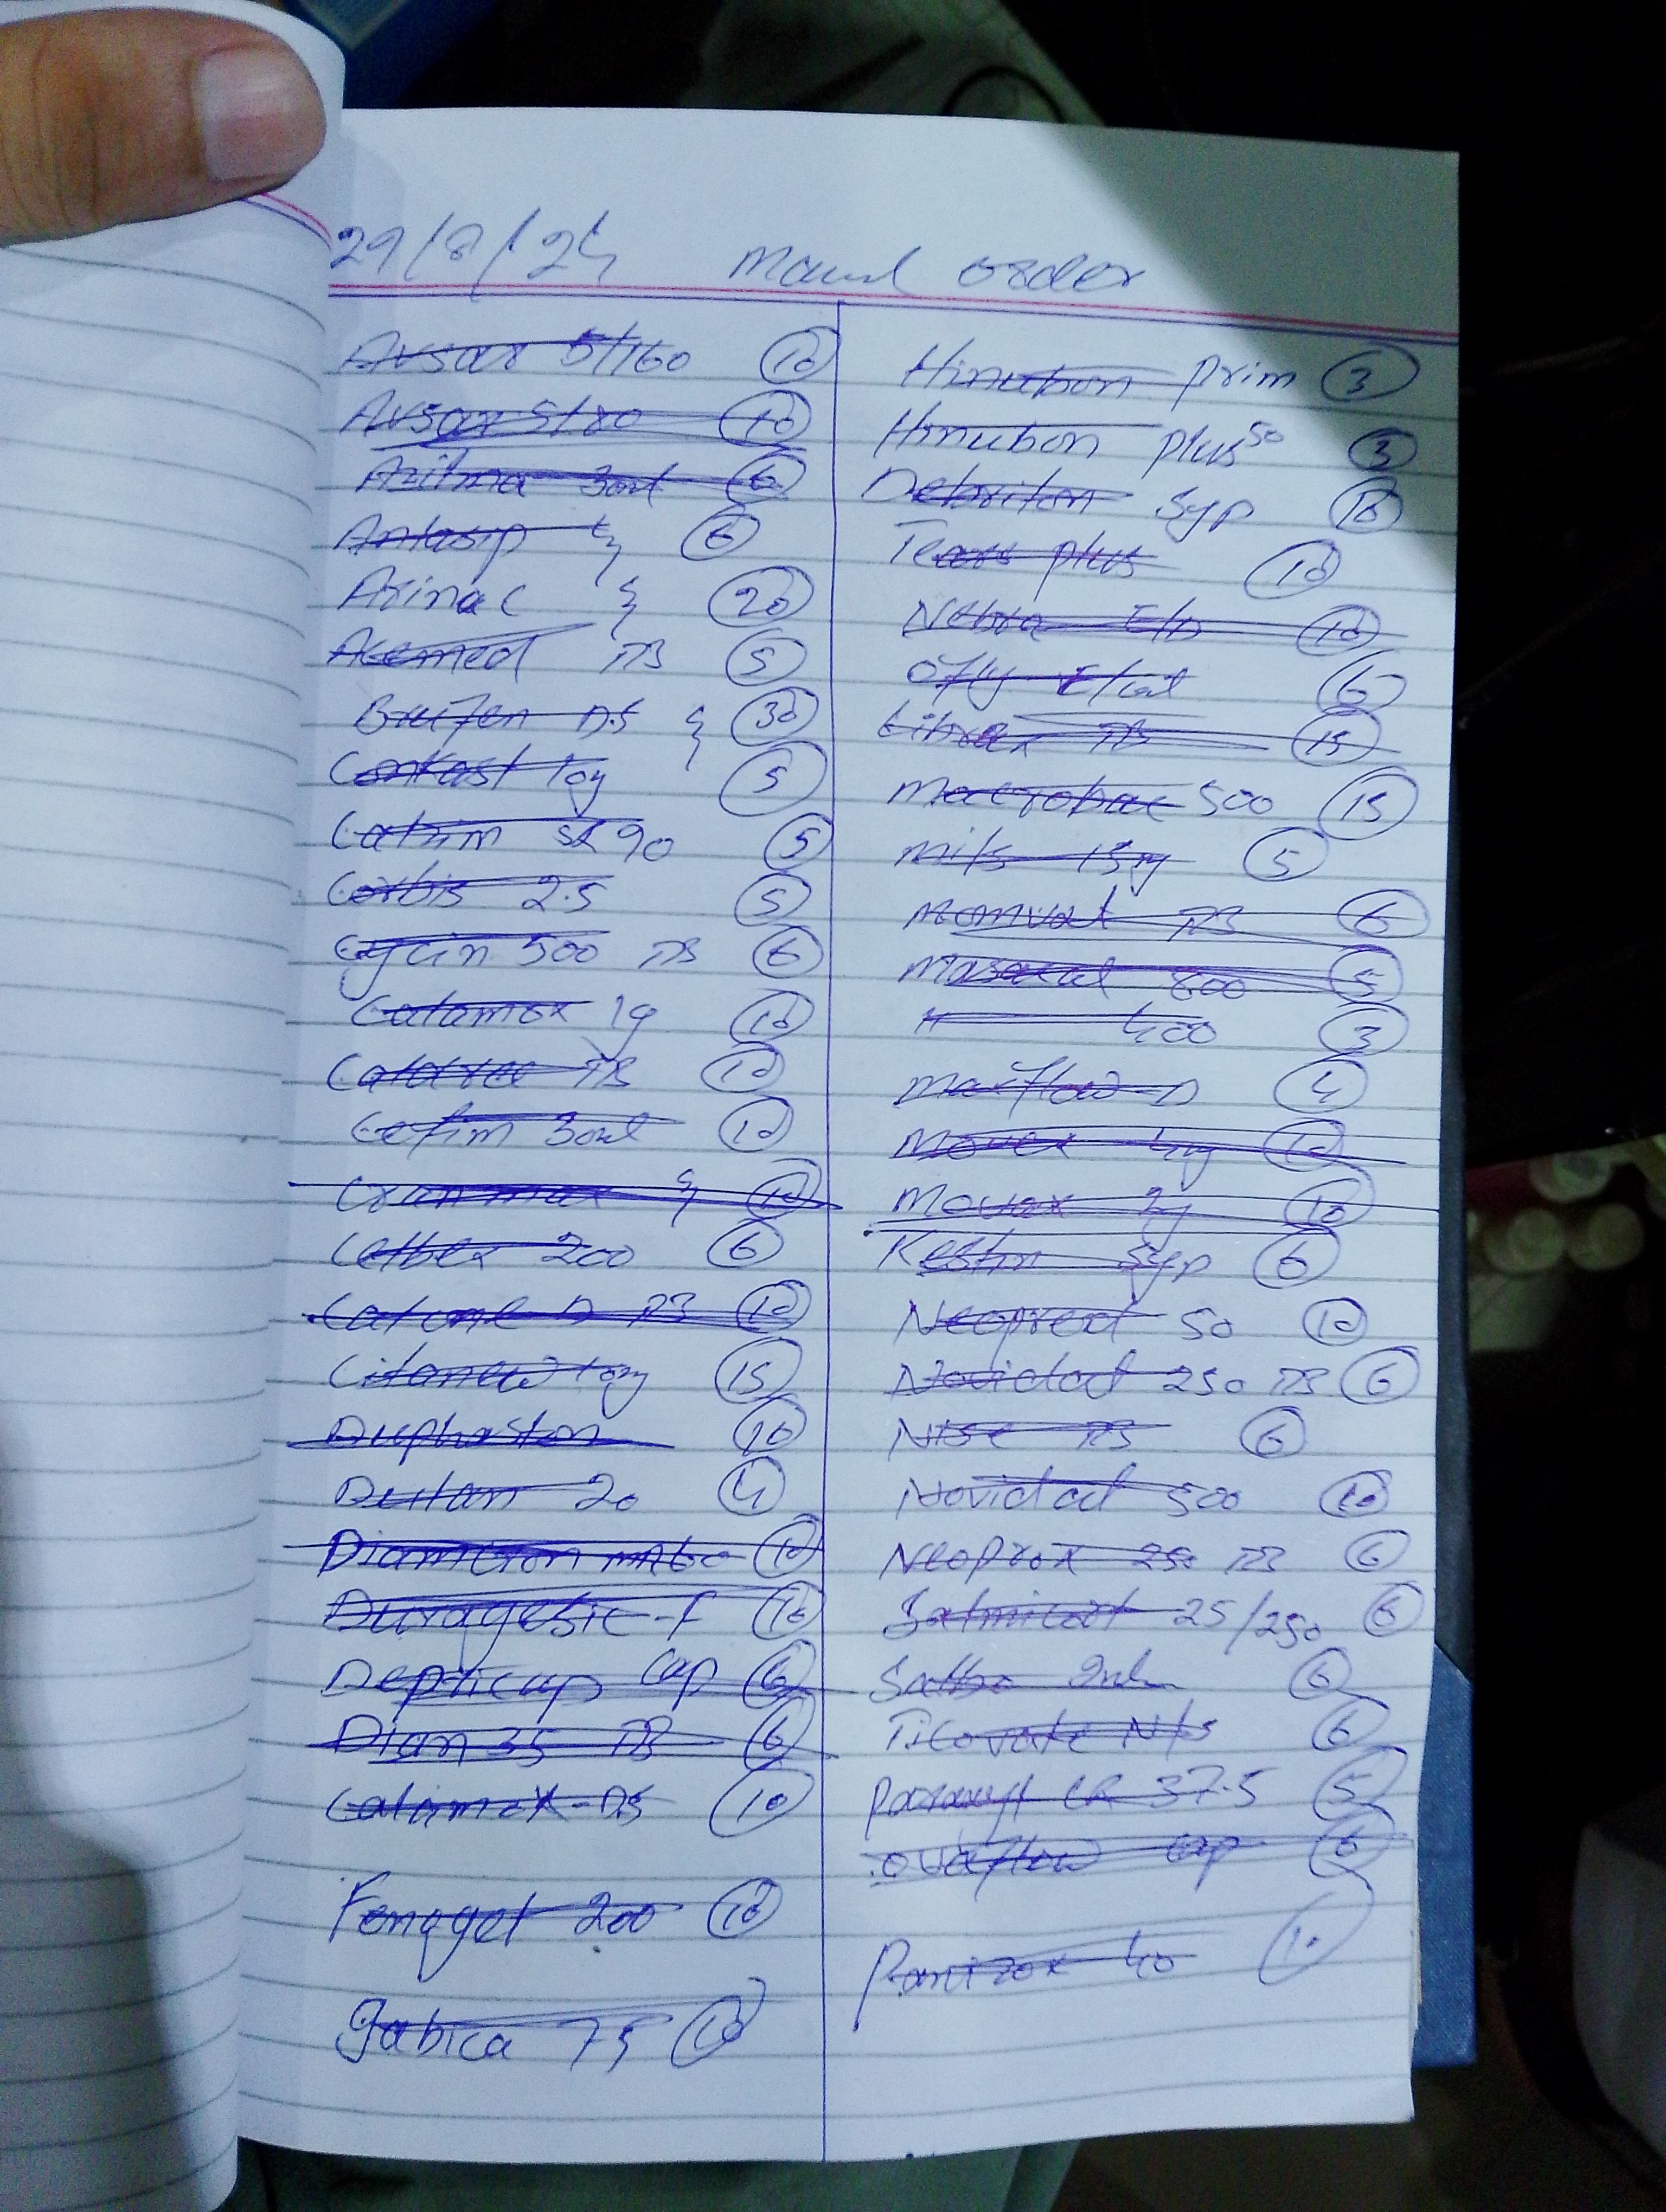 29/8/24 order
Avsar 5/160 10
Avsar 5/80 10
Azitma 30ml 6
Antasip 6
Arinac 20
Acemed TB 5
Brufen DS 30
Conkast 10g 5
Catrim SR 90 5
Corbis 2.5 5
Cycin 500 TB 6
Calamox 1g 10
TB 10
Cefim 30ml 10
Cranmax 10
Celbex 200 6
D TB 10
Citanew 10g 15
Duphaston 10
20 4
Diamicron MR60 10
Duragesic-f 10
Depricap Cap 6
Dian 35 TB 6
Calamox-DS 10
Fenoget 200 10
Gabica 75 10
Hinubon prim 3
Hinubon plus 50 3
Debriton Syp 10
Tears plus 10
Nebra E/D 10
Ofly 6
Librax TB 15
Macrobac 500 15
15g 5
Momvat TB 6
Masacol 800 5
" 400 3
Maxflow-D 4
Movax 4g 10
Movax 2g 10
Kestin Syp 6
Neopred 50 10
Novidat 250 TB 6
Nise TB 6
Novidat 500 10
Neoprox 250 TB 6
Salmicort 25/250 6
Salbo Inh 6
Ticovate N/S 6
Paraxyl CR 37.5 5
Ovaflow cap 6
Panizox 40 10